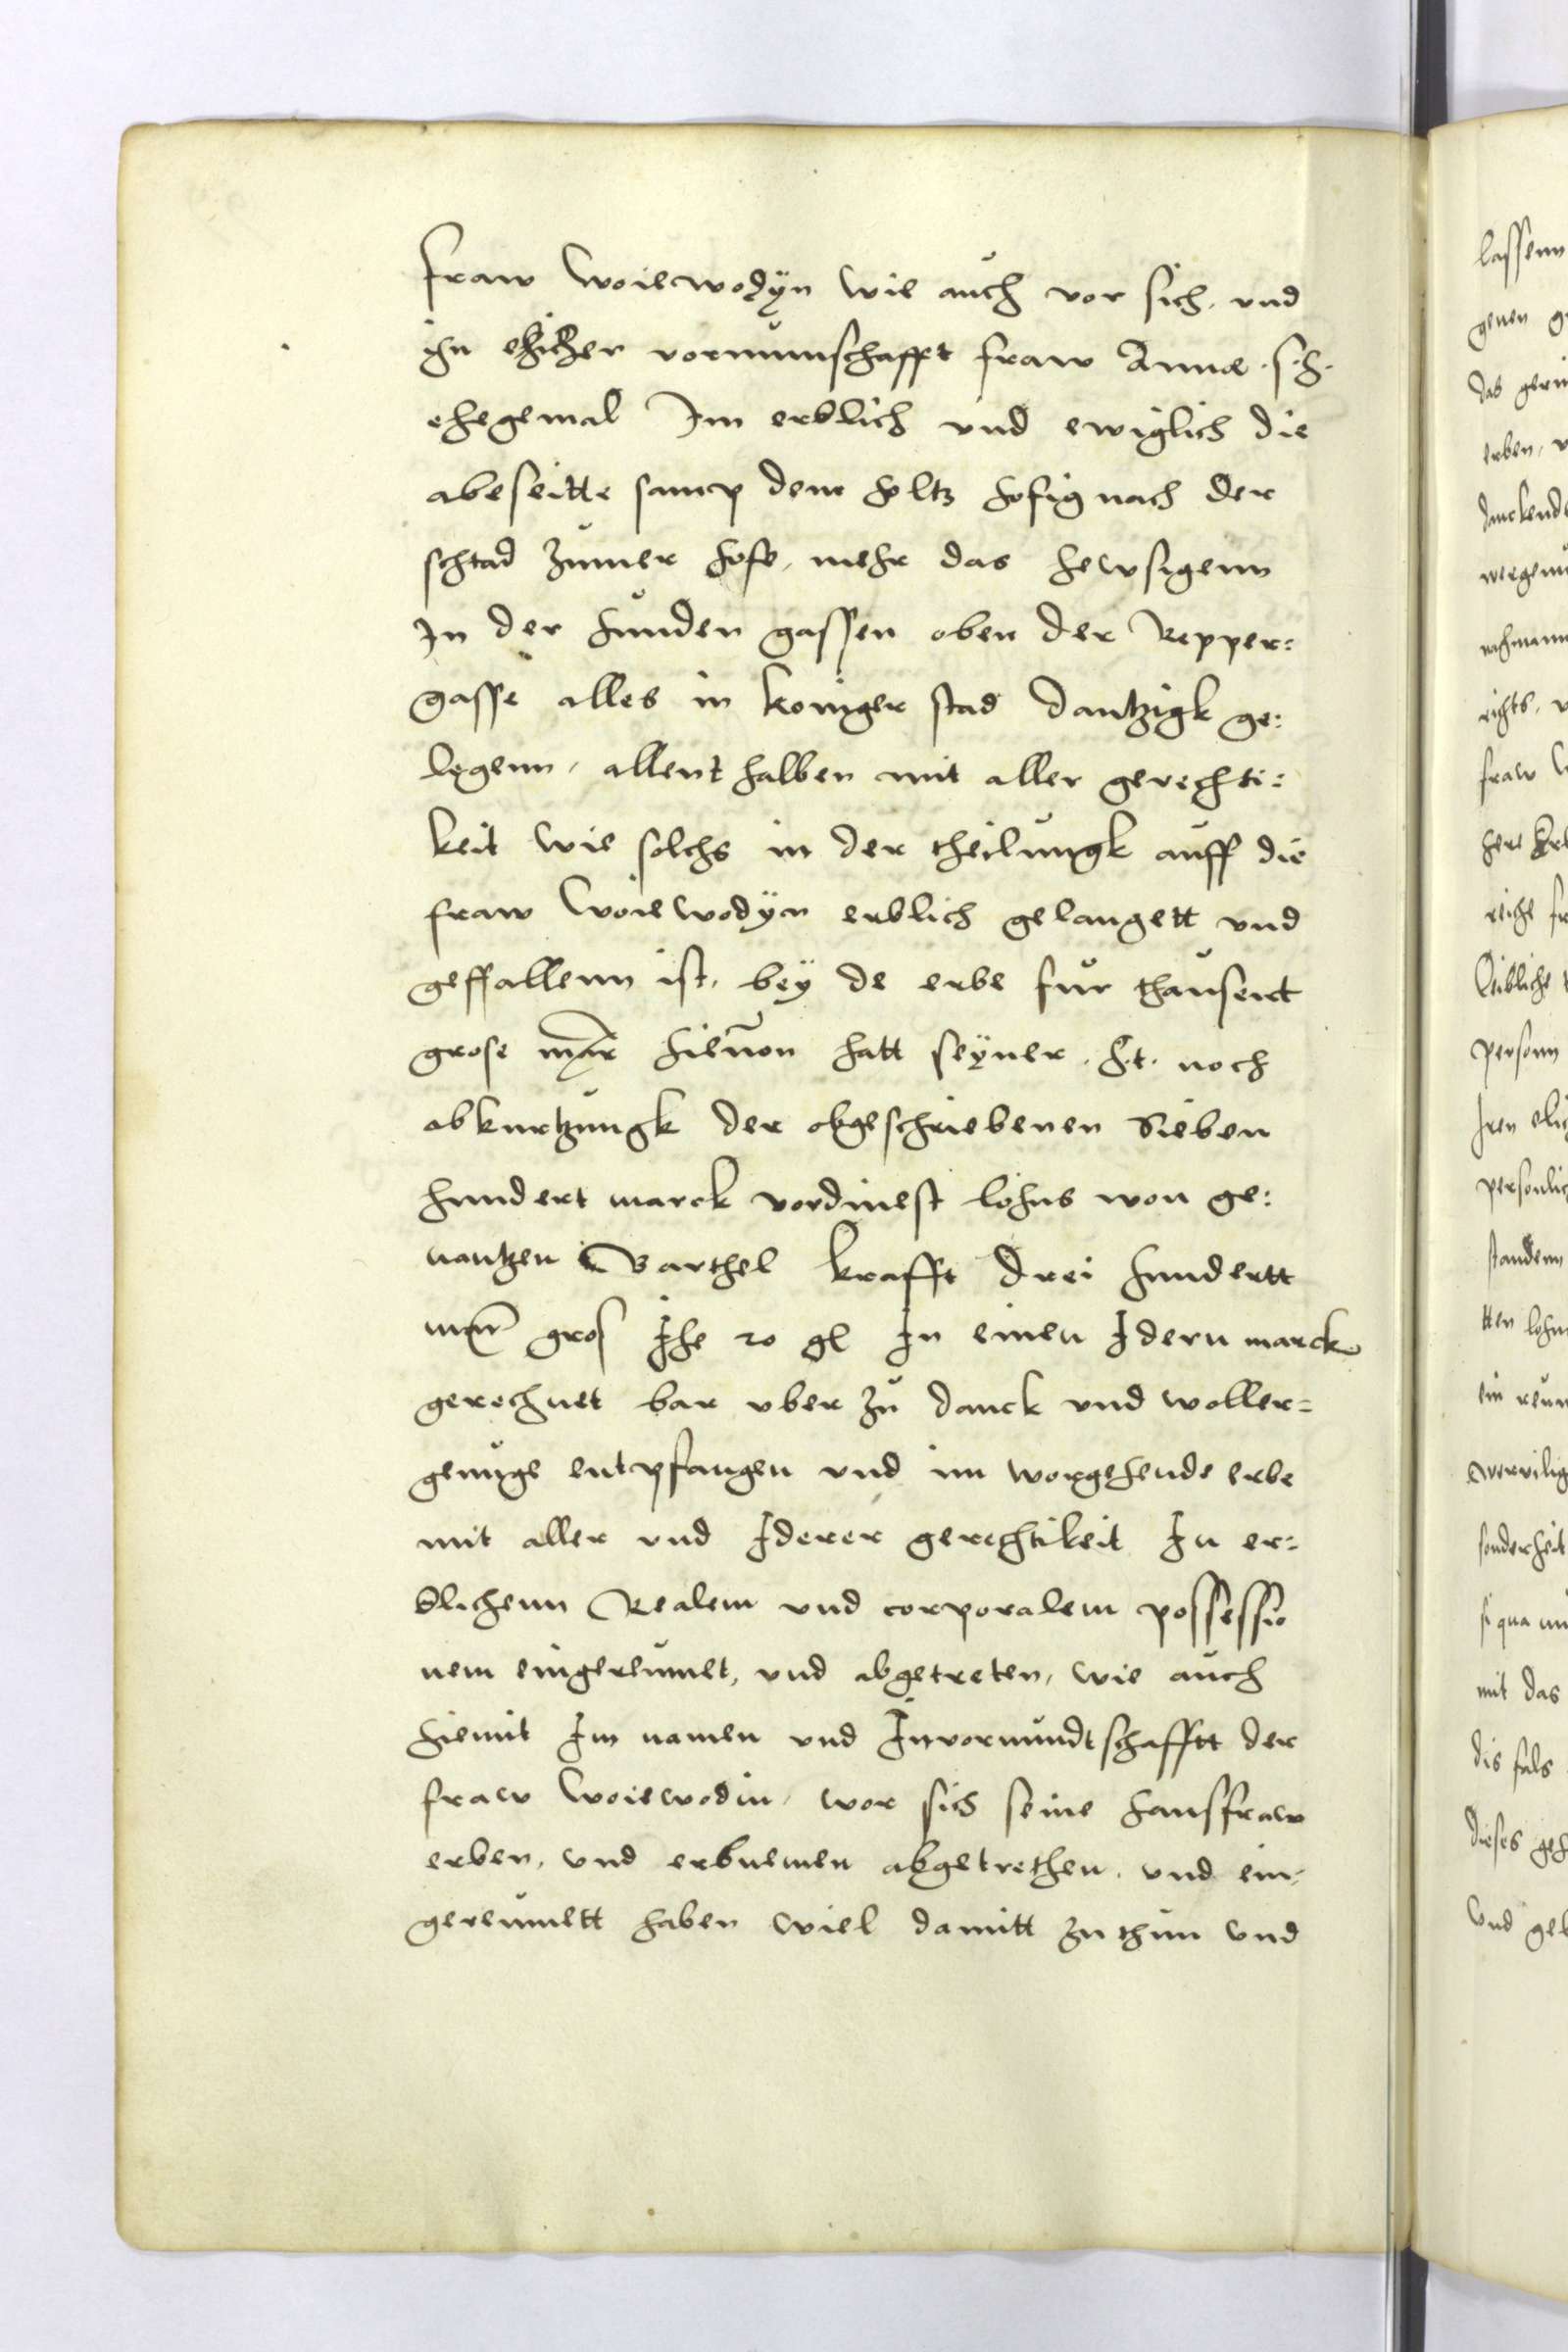 fraw Woiewodÿn wie auch vor sich, und
ihn ehlicher vormunschafft fraw Annae .s.h.
ehegemal Im erblich und ewiglich die
abeseitte samp dem holtz hofig nach der
schtad zimer hofe, mehr das hewsigenn
In der hunden gassen oben der Kepper=
gasse alles in koniger stad dantzigk ge:
legenn, allent halben mit aller gerechti=
keit wie solchs in der theilungk auff die
fraw Woiewodÿn erblich gelangett und
geffallenn ist, beÿ de erbe fur thausent
grose mar hieuon hatt seÿner .h.t. noch
abkurtzungk der obgeschriebenen Sieben
hundert marck vordinest lohns won ge:
nantzen Barthel krafft drei hundertt
mar gros Ihe 20 gl In einen Idern marck
gerechnet bar uber zu danck und woller=
genuge entpfangen und im worgehende erbe
mit aller und Iderer gerechtikeit In er=
blichenn Realem und corporalem possessio
nem eingereumet, und abgetreten, wie auch
hiemit Im namen und In vormundtschafftt der
fraw Woiewodin, wor sich seine hausfraw
erben, und erbnemen abgetrethen, und ein,
gereumett haben wiel damitt zu thun und
lassenn
genen
das
erben,
danckend
wegenn
richts,
fraw
reiche
leibliche
personn
Iren
personlic
standenn
tten lohn
ein
sonderheit
si qua
mit das
dis fals
dieses
Und